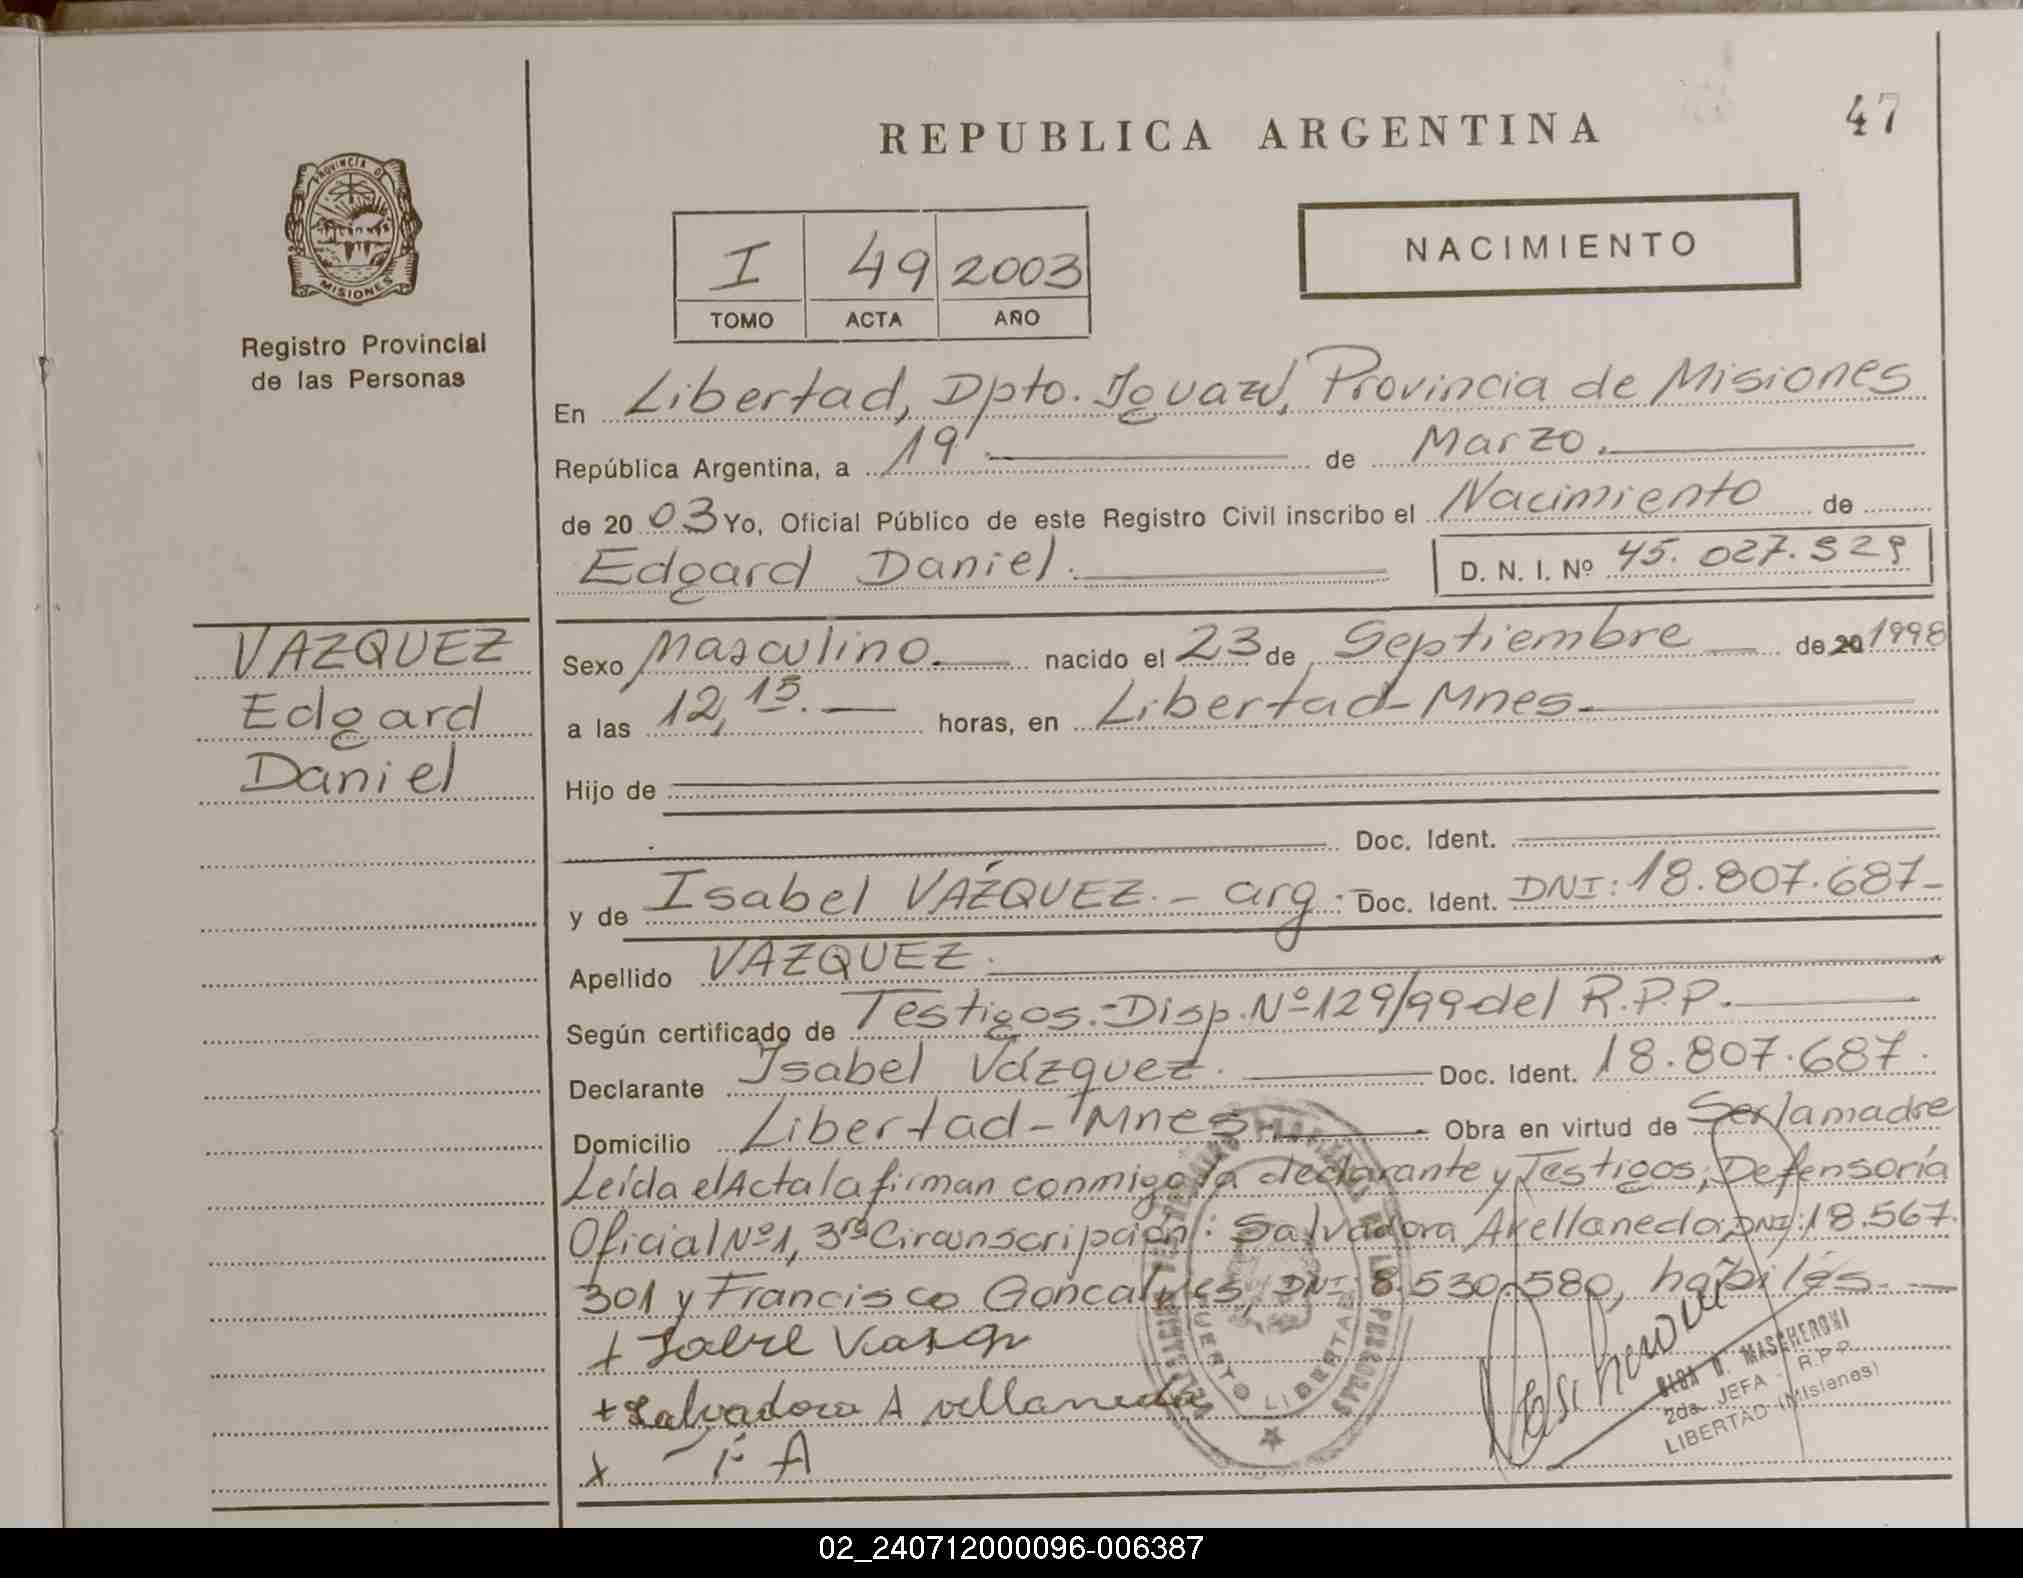 47
REPUBLICA ARGENTINA
PROVINCIA DE
MISIONES
NACIMIENTO
I 49 2003
TOMO ACTA AÑO
Registro Provincial
de las Personas
En Libertad, Dpto. Iguazú, Provincia de Misiones
República Argentina, a 19 de Marzo.
de 2003 Yo, Oficial Público de este Registro Civil inscribo el Nacimiento de
Edgard Daniel. D. N. I. Nº 45.027.929
VAZQUEZ
Edgard
Daniel
Sexo Masculino. nacido el 23 de Septiembre de 20 1998
a las 12,15. horas, en Libertad-Mnes.
Hijo de
Doc. Ident.
y de Isabel VÁZQUEZ.- arg. Doc. Ident. DNI: 18.807.687-
Apellido VAZQUEZ.
Según certificado de Testigos.-Disp. Nº 129/99 del R.P.P.
Declarante Isabel Vázquez. Doc. Ident. 18.807.687.
Domicilio Libertad-Mnes. Obra en virtud de Ser la madre
Leída el Acta la firman conmigo la declarante y Testigos; Defensoría
Oficial Nº1, 3ra Circunscripción: Salvadora Avellaneda; DNI: 18.567.
301 y Francisco Goncalves, DNI 8.530.580, habiles.
+ Isabel
+ Salvadora Avellaneda
x F A
PUERTO LIBERTAD
MASCHERONI
2da. JEFA - R.P.P.
LIBERTAD (Misiones)
02_240712000096-006387